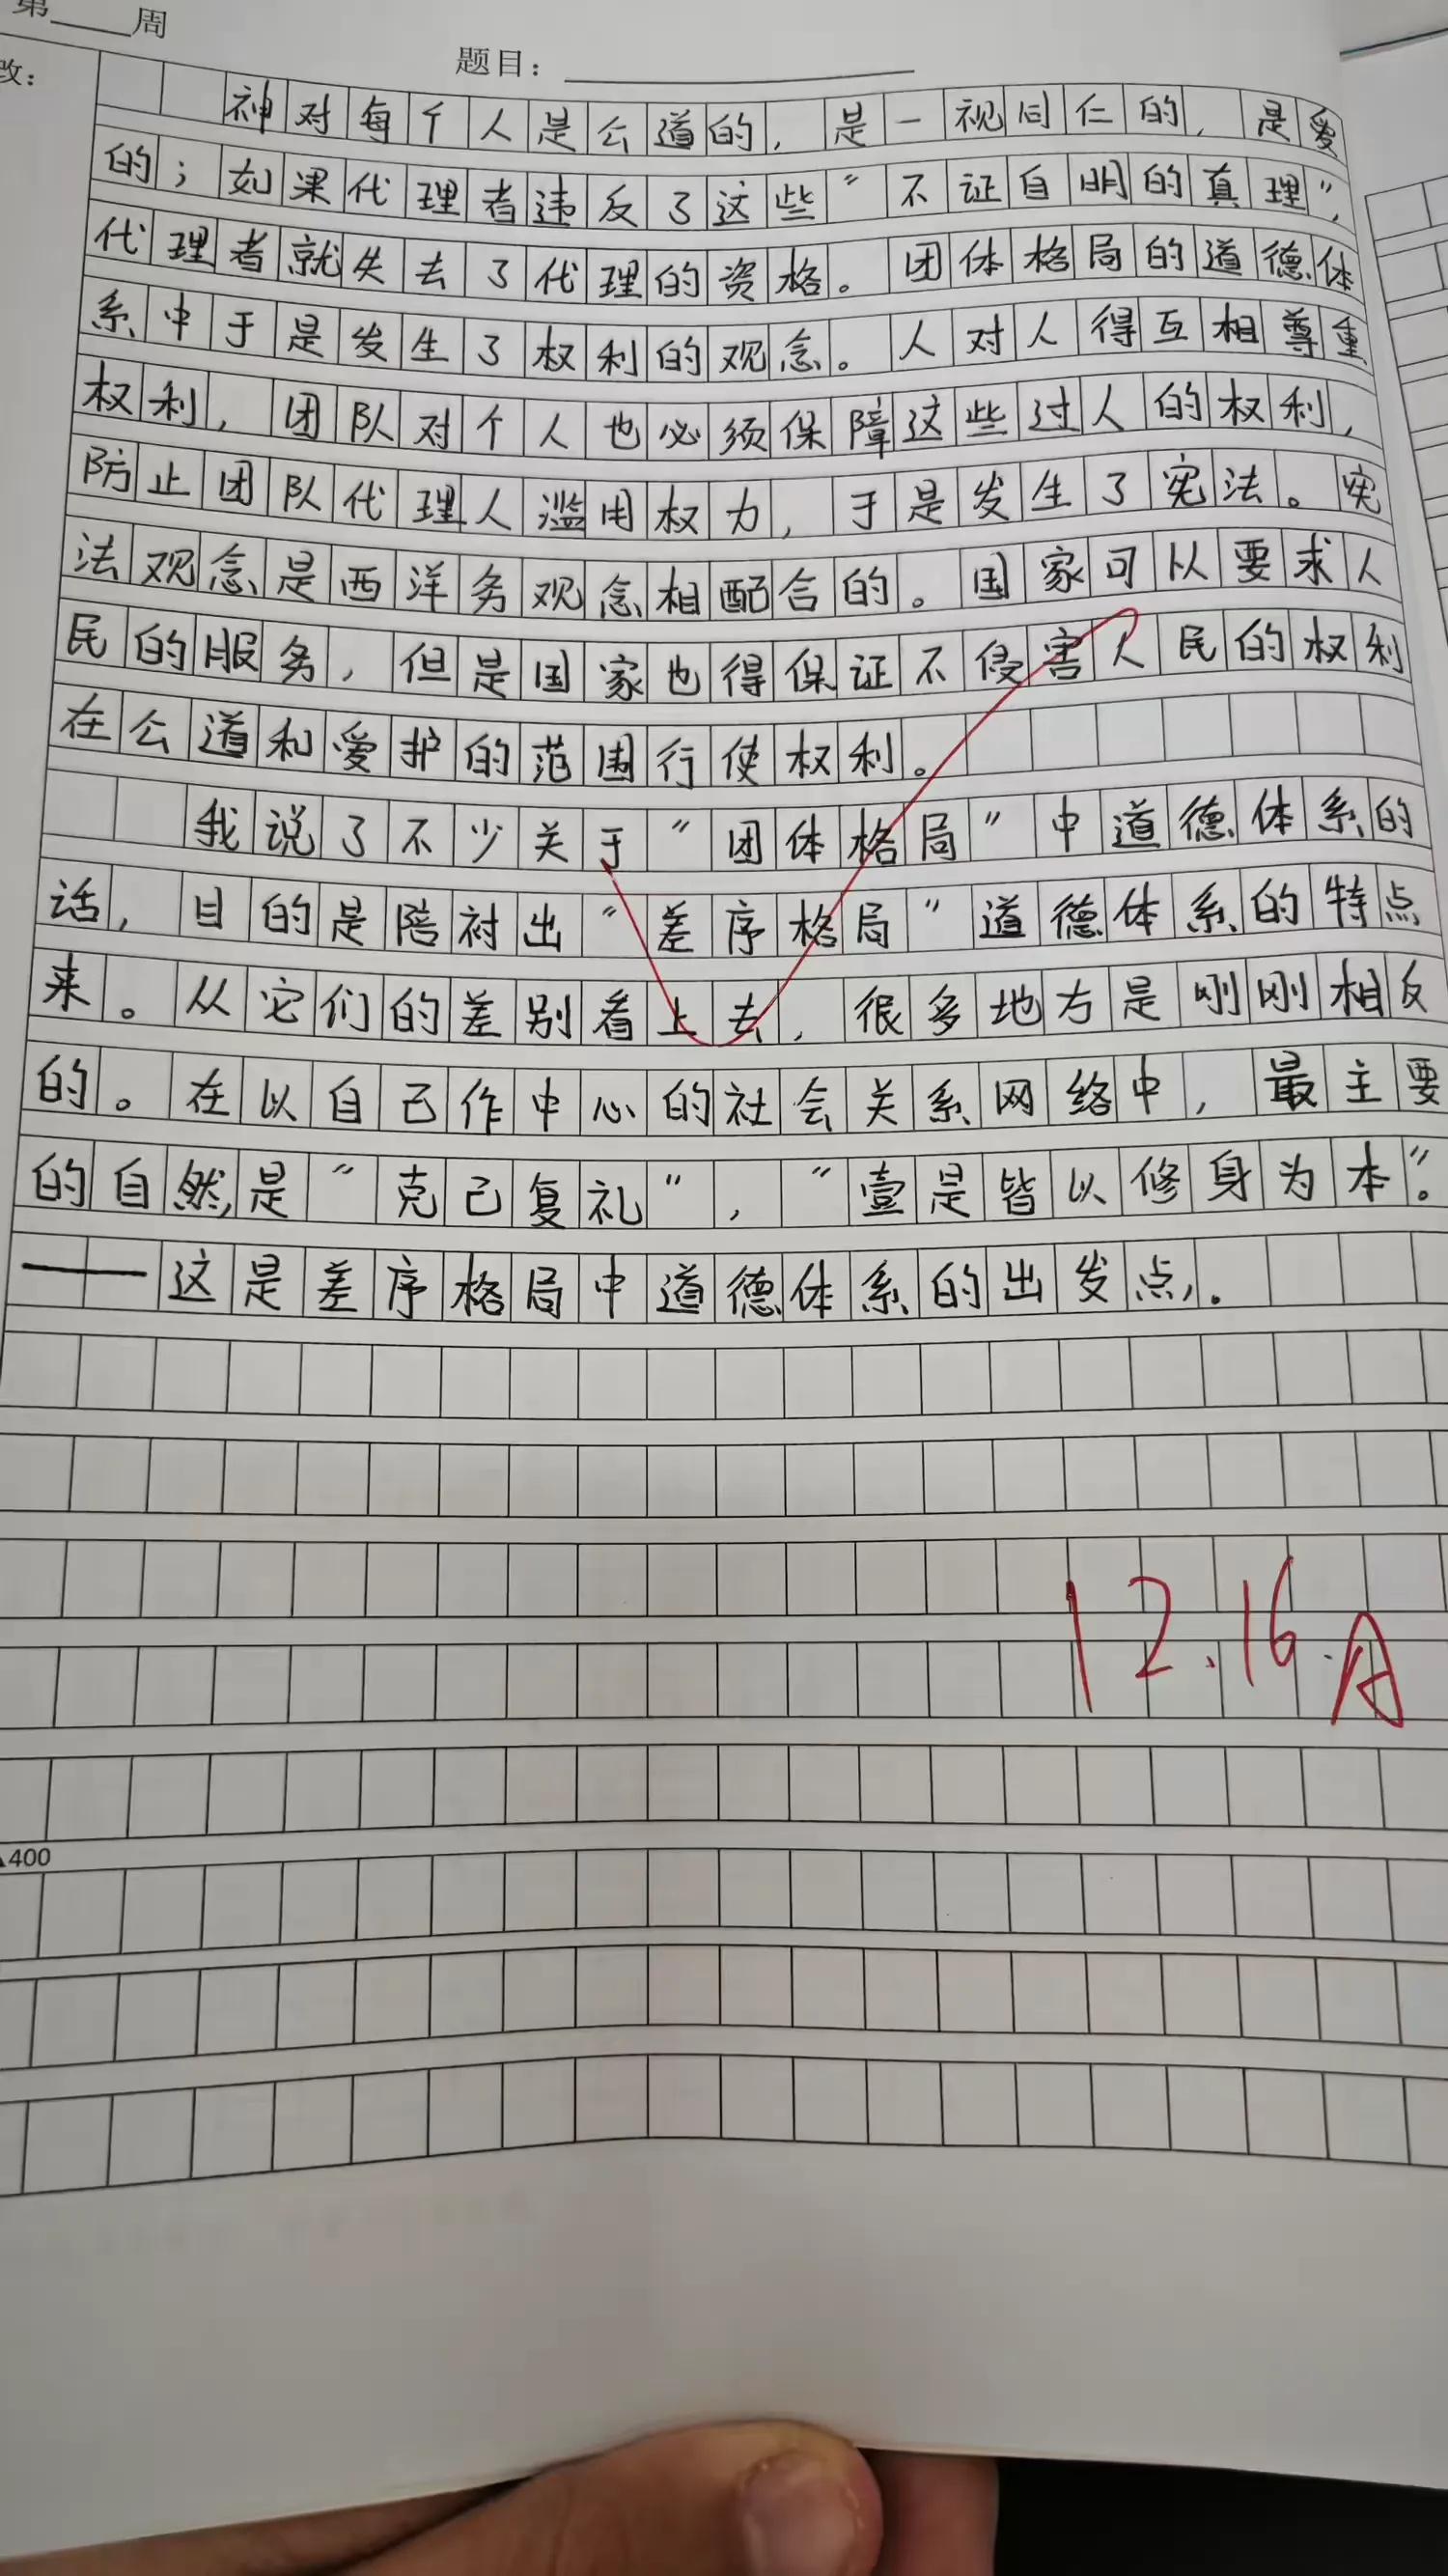 第____周
改：
题目：
神对每个人是公道的，是一视同仁的，是爱
的；如果代理者违反了这些“不证自明的真理”，
代理者就失去了代理的资格。团体格局的道德体
系中于是发生了权利的观念。人对人得互相尊重
权利，团队对个人也必须保障这些过人的权利，
防止团队代理人滥用权力，于是发生了宪法。宪
法观念是西洋务观念相配合的。国家可以要求人
民的服务，但是国家也得保证不侵害人民的权利
在公道和爱护的范围行使权利。
我说了不少关于“团体格局”中道德体系的
话，目的是陪衬出“差序格局”道德体系的特点
来。从它们的差别看上去，很多地方是刚刚相反
的。在以自己作中心的社会关系网络中，最主要
的自然是“克己复礼”，“壹是皆以修身为本”。
——这是差序格局中道德体系的出发点。
12.16.A
▲400